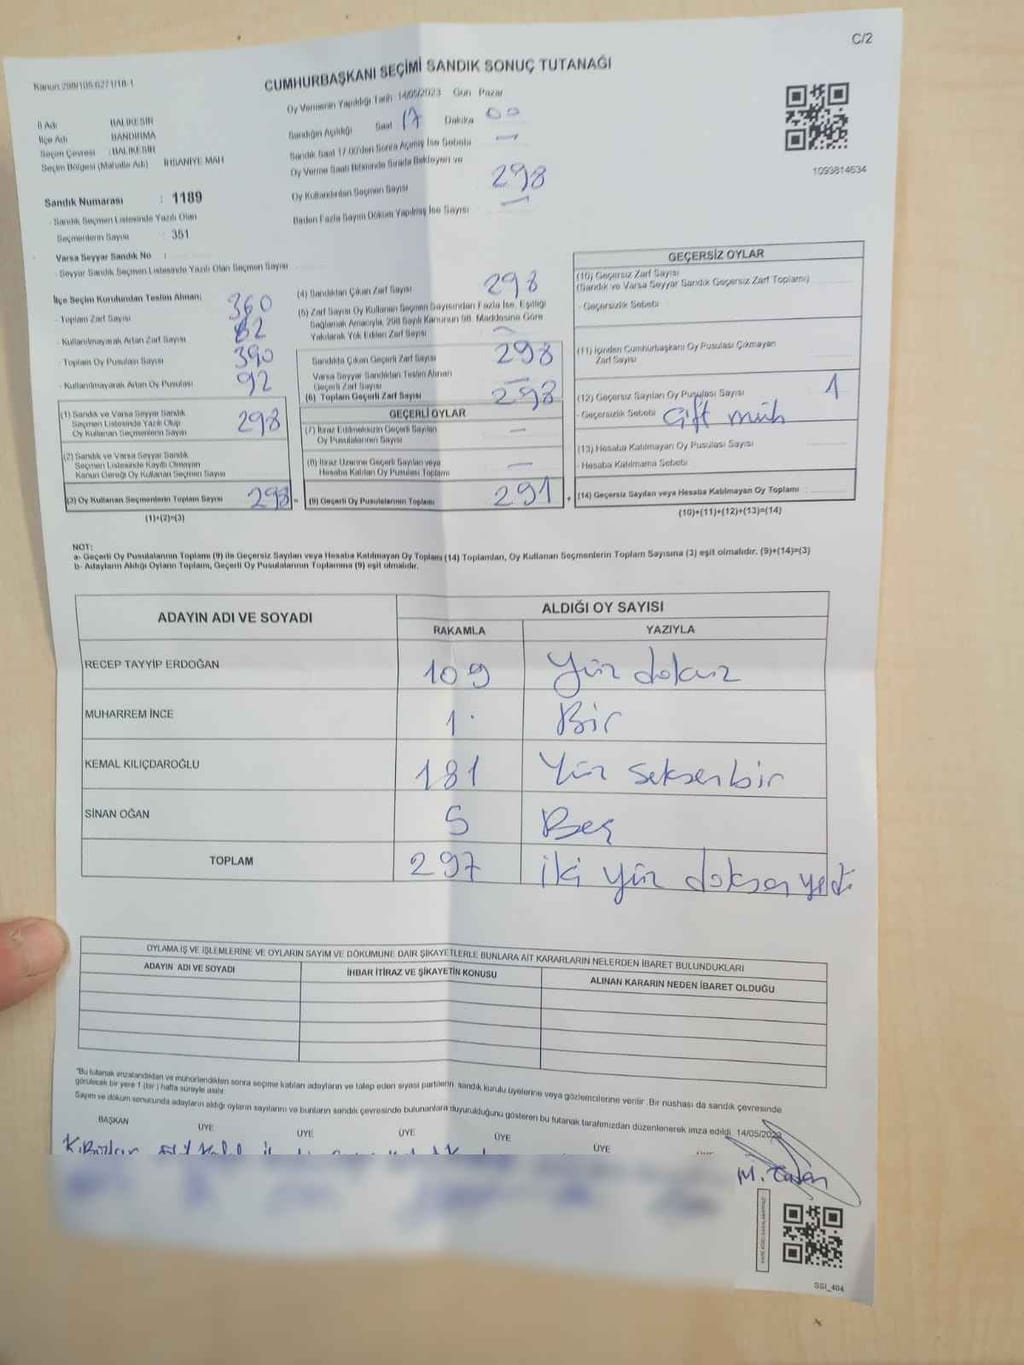 C/2
Kanun:298/105,6271/18-1
CUMHURBAŞKANI SEÇİMİ SANDIK SONUÇ TUTANAĞI
Oy Vermenin Yapıldığı Tarih 14/05/2023 Gün Pazar
İl Adı BALIKESİR
İlçe Adı BANDIRMA
Seçim Çevresi : BALIKESİR
Seçim Bölgesi (Mahalle Adı) İHSANİYE MAH
Sandığın Açıldığı Saat 17 Dakika 00
Sandık Saat 17.00'den Sonra Açılmış İse Sebebi —
Oy Verme Saati Bitiminde Sırada Bekleyen ve
Oy Kullandırılan Seçmen Sayısı 298
Birden Fazla Sayım Döküm Yapılmış İse Sayısı —
1093814634
Sandık Numarası : 1189
- Sandık Seçmen Listesinde Yazılı Olan
Seçmenlerin Sayısı : 351
Varsa Seyyar Sandık No :
- Seyyar Sandık Seçmen Listesinde Yazılı Olan Seçmen Sayısı
İlçe Seçim Kurulundan Teslim Alınan;
- Toplam Zarf Sayısı 360
- Kullanılmayarak Artan Zarf Sayısı 62
- Toplam Oy Pusulası Sayısı 390
- Kullanılmayarak Artan Oy Pusulası 92
(1) Sandık ve Varsa Seyyar Sandık
Seçmen Listesinde Yazılı Olup
Oy Kullanan Seçmenlerin Sayısı 298
(2) Sandık ve Varsa Seyyar Sandık
Seçmen Listesinde Kayıtlı Olmayan
Kanun Gereği Oy Kullanan Seçmen Sayısı
(3) Oy Kullanan Seçmenlerin Toplam Sayısı 298
(1)+(2)=(3)
(4) Sandıktan Çıkan Zarf Sayısı 298
(5) Zarf Sayısı Oy Kullanan Seçmen Sayısından Fazla İse, Eşitliği
Sağlamak Amacıyla, 298 Sayılı Kanunun 98. Maddesine Göre
Yakılarak Yok Edilen Zarf Sayısı —
Sandıkta Çıkan Geçerli Zarf Sayısı 298
Varsa Seyyar Sandıktan Teslim Alınan
Geçerli Zarf Sayısı —
(6) Toplam Geçerli Zarf Sayısı 298
GEÇERLİ OYLAR
(7) İtiraz Edilmeksizin Geçerli Sayılan
Oy Pusulalarının Sayısı —
(8) İtiraz Üzerine Geçerli Sayılan veya
Hesaba Katılan Oy Pusulası Toplamı —
(9) Geçerli Oy Pusulalarının Toplamı 291
GEÇERSİZ OYLAR
(10) Geçersiz Zarf Sayısı
(Sandık ve Varsa Seyyar Sandık Geçersiz Zarf Toplamı)
- Geçersizlik Sebebi
(11) İçinden Cumhurbaşkanı Oy Pusulası Çıkmayan
Zarf Sayısı
(12) Geçersiz Sayılan Oy Pusulası Sayısı 1
- Geçersizlik Sebebi Çift müh
(13) Hesaba Katılmayan Oy Pusulası Sayısı
- Hesaba Katılmama Sebebi
(14) Geçersiz Sayılan veya Hesaba Katılmayan Oy Toplamı
(10)+(11)+(12)+(13)=(14)
NOT:
a- Geçerli Oy Pusulalarının Toplamı (9) ile Geçersiz Sayılan veya Hesaba Katılmayan Oy Toplamı (14) Toplamları, Oy Kullanan Seçmenlerin Toplam Sayısına (3) eşit olmalıdır. (9)+(14)=(3)
b- Adayların Aldığı Oyların Toplamı, Geçerli Oy Pusulalarının Toplamına (9) eşit olmalıdır.
ADAYIN ADI VE SOYADI ALDIĞI OY SAYISI
RAKAMLA YAZIYLA
RECEP TAYYİP ERDOĞAN 109 Yüz dokuz
MUHARREM İNCE 1 Bir
KEMAL KILIÇDAROĞLU 181 Yüz seksenbir
SİNAN OĞAN 5 Beş
TOPLAM 297 iki yüz doksan yedi
OYLAMA İŞ VE İŞLEMLERİNE VE OYLARIN SAYIM VE DÖKÜMÜNE DAİR ŞİKAYETLERLE BUNLARA AİT KARARLARIN NELERDEN İBARET BULUNDUKLARI
ADAYIN ADI VE SOYADI İHBAR İTİRAZ VE ŞİKAYETİN KONUSU ALINAN KARARIN NEDEN İBARET OLDUĞU
"Bu tutanak imzalandıktan ve mühürlendikten sonra seçime katılan adayların ve talep eden siyasi partilerin sandık kurulu üyelerine veya gözlemcilerine verilir. Bir nüshası da sandık çevresinde
görülecek bir yere 1 (bir) hafta süreyle asılır.
Sayım ve döküm sonucunda adayların aldığı oyların sayılarını ve bunların sandık çevresinde bulunanlara duyurulduğunu gösteren bu tutanak tarafımızdan düzenlenerek imza edildi. 14/05/2023
BAŞKAN ÜYE ÜYE ÜYE ÜYE ÜYE
SSI_404